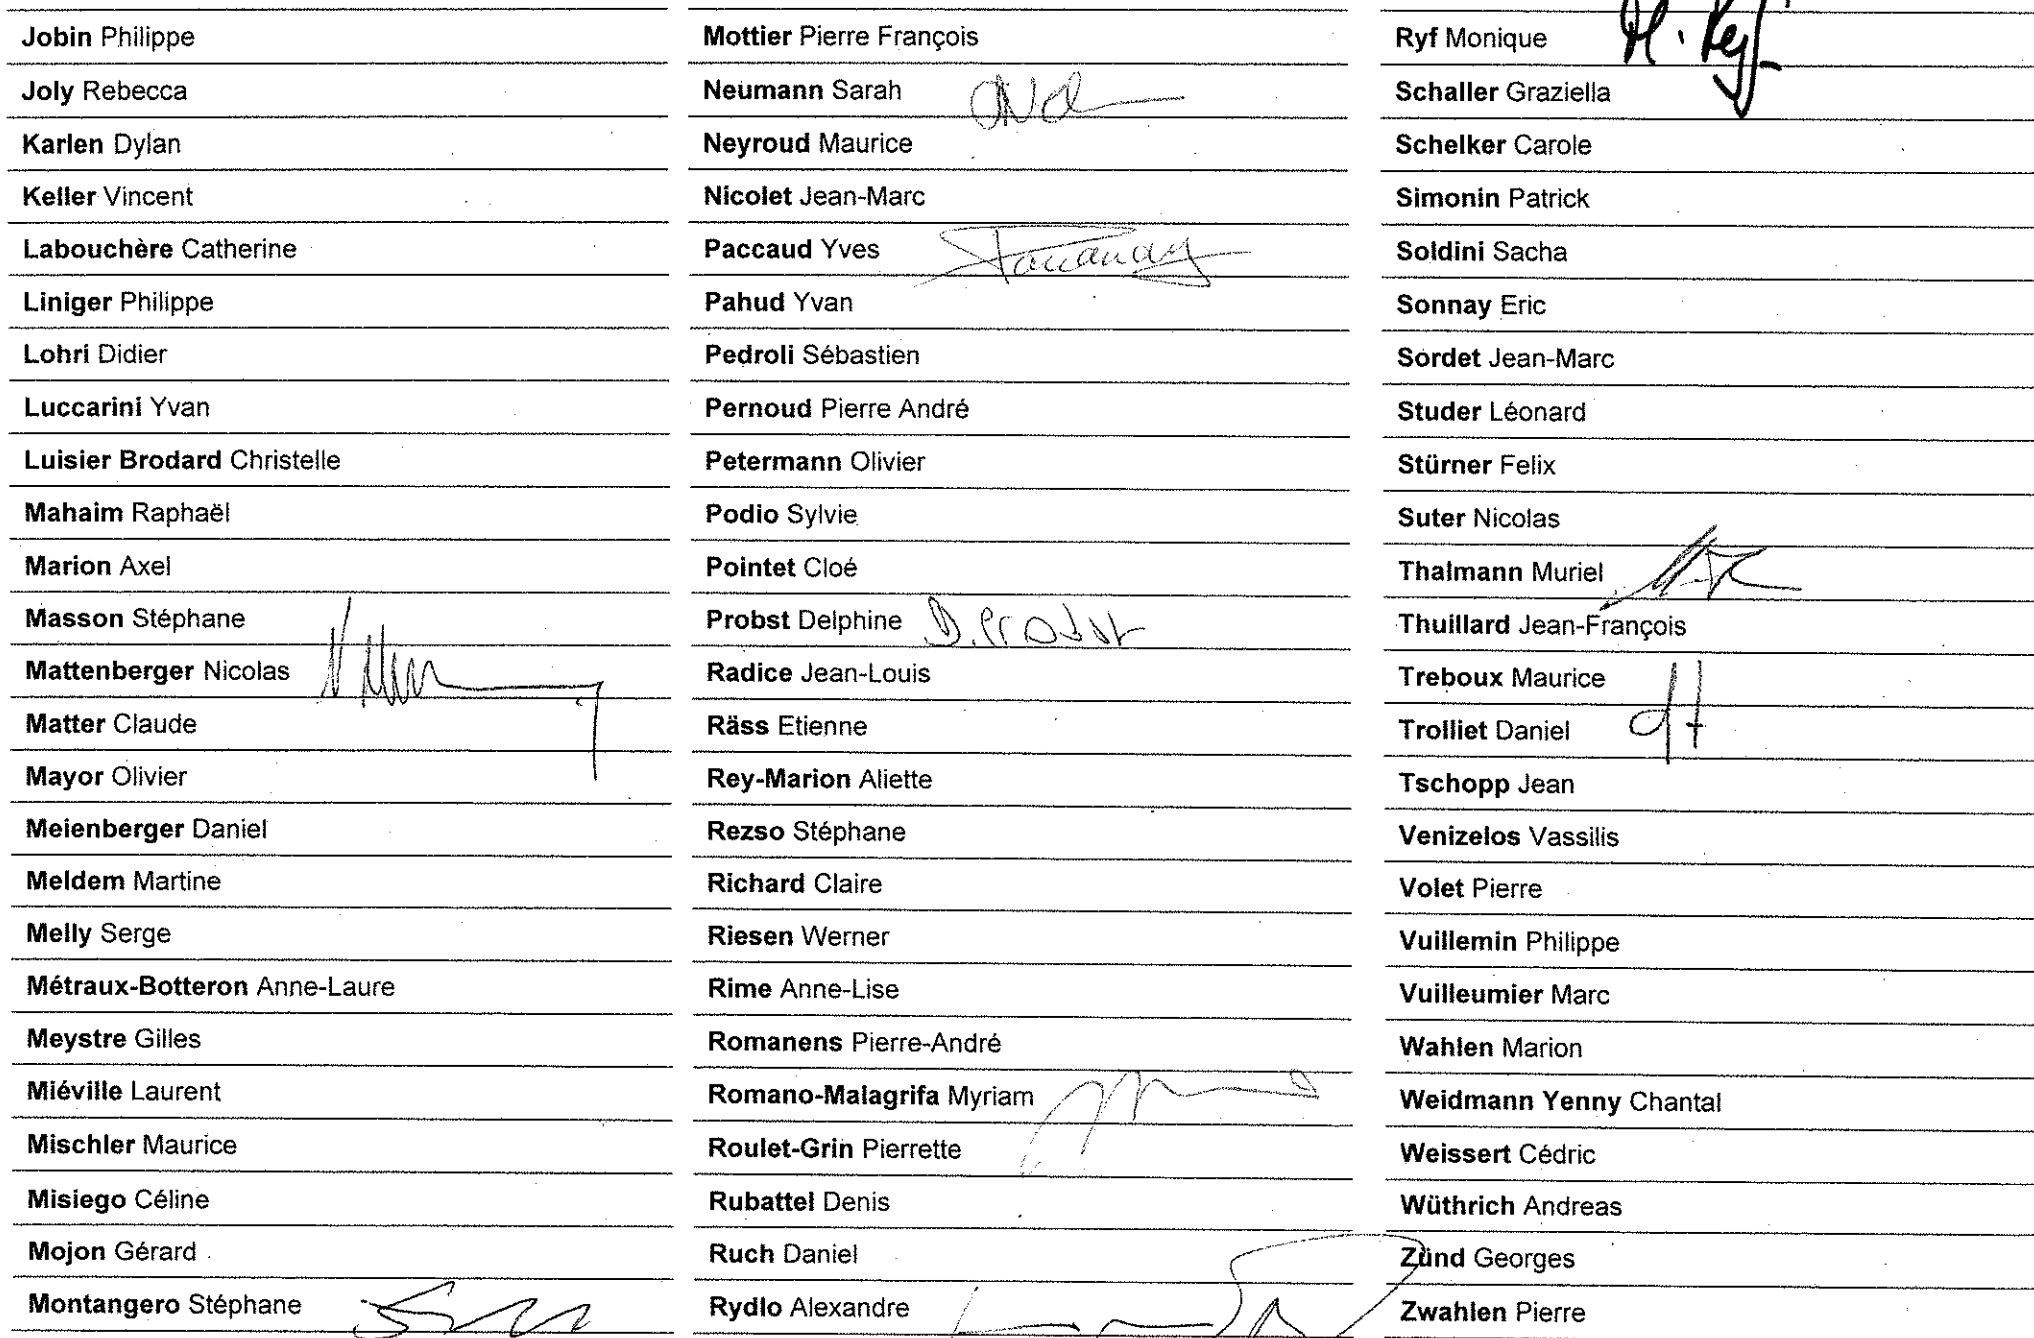 Jobin Philippe
Joly Rebecca
Karlen Dylan
Keller Vincent
Labouchère Catherine
Liniger Philippe
Lohri Didier
Luccarini Yvan
Luisier Brodard Christelle
Mahaim Raphaël
Marion Axel
Masson Stéphane
Mattenberger Nicolas
Matter Claude
Mayor Olivier
Meienberger Daniel
Meldem Martine
Melly Serge
Métraux-Botteron Anne-Laure
Meystre Gilles
Miéville Laurent
Mischler Maurice
Misiego Céline
Mojon Gérard
Montangero Stéphane
Mottier Pierre François
Neumann Sarah
Neyroud Maurice
Nicolet Jean-Marc
Paccaud Yves
Pahud Yvan
Pedroli Sébastien
Pernoud Pierre André
Petermann Olivier
Podio Sylvie
Pointet Cloé
Probst Delphine D. Probst
Radice Jean-Louis
Räss Etienne
Rey-Marion Aliette
Rezso Stéphane
Richard Claire
Riesen Werner
Rime Anne-Lise
Romanens Pierre-André
Romano-Malagrifa Myriam
Roulet-Grin Pierrette
Rubattel Denis
Ruch Daniel
Rydlo Alexandre
Ryf Monique M. Ryf
Schaller Graziella
Schelker Carole
Simonin Patrick
Soldini Sacha
Sonnay Eric
Sordet Jean-Marc
Studer Léonard
Stürner Felix
Suter Nicolas
Thalmann Muriel
Thuillard Jean-François
Treboux Maurice
Trolliet Daniel
Tschopp Jean
Venizelos Vassilis
Volet Pierre
Vuillemin Philippe
Vuilleumier Marc
Wahlen Marion
Weidmann Yenny Chantal
Weissert Cédric
Wüthrich Andreas
Zünd Georges
Zwahlen Pierre